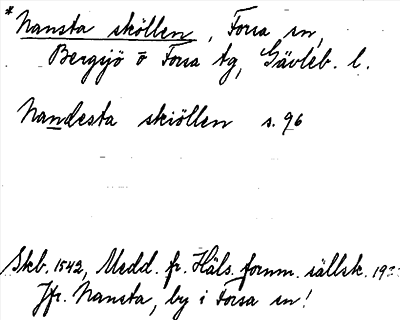 * Nansta sköllen, Forsa sn,
Bergsjö o Forsa tg, Gävleb. l.
Nandesta skiöllen s. 96
Skb. 1542, Medd. fr. Häls. fornm. sällsk. 19
Jfr. Nansta, by i Forsa sn!